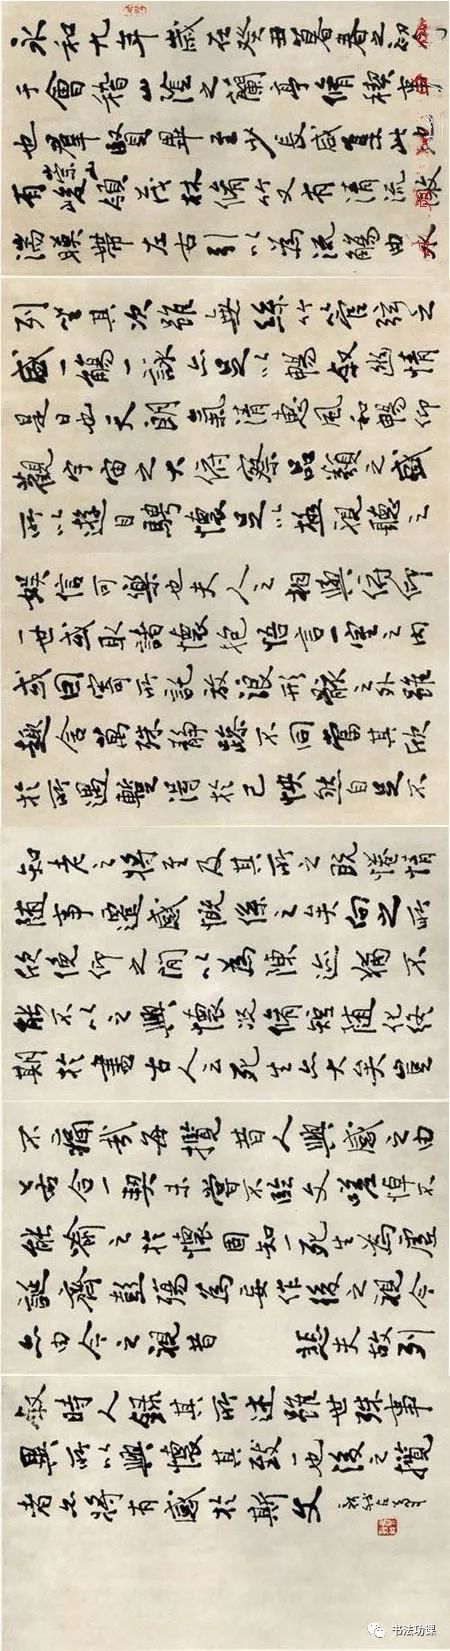 永和九年歲在癸丑暮春之初會
于會稽山陰之蘭亭脩禊事
也羣賢畢至少長咸集此地
有崇山峻領茂林脩竹又有清流激
湍暎帶左右引以為流觴曲水
列坐其次雖無絲竹管弦之
盛一觴一詠亦足以暢叙幽情
是日也天朗氣清惠風和暢仰
觀宇宙之大俯察品類之盛
所以遊目騁懷足以極視聽之
娛信可樂也夫人之相與俯仰
一世或取諸懷抱悟言一室之內
或因寄所託放浪形骸之外雖
趣舍萬殊靜躁不同當其欣
於所遇暫得於己怏然自足不
知老之將至及其所之既惓情
隨事遷感慨係之矣向之所
欣俛仰之閒以為陳迹猶不
能不以之興懷況脩短隨化終
期於盡古人云死生亦大矣豈
不痛哉每攬昔人興感之由
若合一契未嘗不臨文嗟悼不
能喻之於懷固知一死生為虛
誕齊彭殤為妄作後之視今
亦由今之視昔 悲夫故列
叙時人錄其所述雖世殊事
異所以興懷其致一也後之攬
者亦將有感於斯文
书法功课